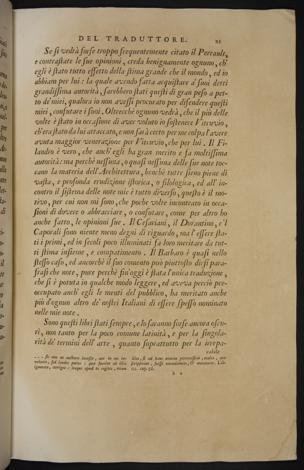 DEL TRADUTTORE. xi
Se si vedrà forse troppo frequentemente citato il Perrault,
e contrastate le sue opinioni, creda benignamente ognuno, ch'
egli è stato tutto effetto della stima grande che il mondo, ed io
abbiam per lui: la quale avendo fatta acquistare a' suoi detti
grandissima autorità, sarebbero stati questi di gran peso a petto
de' miei, qualora io non avessi procurato per difendere questi
miei, confutare i suoi. Oltrecchè ognuno vedrà, che il più delle
volte è stato in occasione di aver voluto io sostenere Vitruvio,
ch'era stato da lui attaccato, e non sarà certo per me colpa l'avere
avuta maggior venerazione per Vitruvio, che per lui. Il Fi-
landro è vero, che anch'egli ha gran merito e fa moltissima
autorità: ma perchè nessuna, o quasi nessuna delle sue note toc-
cano la materia dell'Architettura, benchè tutte sieno piene di
vasta, e profonda erudizione istorica, o filologica, ed all'in-
contro il sistema delle note mie è tutto diverso, questo è il mo-
tivo, per cui non mi sono, che poche volte incontrato in occa-
sioni di dovere o abbracciare, o confutare, come per altro ho
anche fatto, le opinioni sue. Il Cesariani, il Durantino, e'l
Caporali sono niente meno degni di riguardo, ma l'essere sta-
ti i primi, ed in secoli poco illuminati fa loro meritare da tut-
ti stima insieme, e compatimento. Il Barbaro è quasi nello
stesso caso, ed ancorchè il suo comento può piuttosto dirsi para-
frasi che note, pure perchè fin'oggi è stata l'unica traduzione,
che si è potuta in qualche modo leggere, ed aveva perciò pre-
occupato anch'egli le menti del pubblico, ha meritato anche
più d'ognun altro de' nostri Italiani di essere spesso nominato
nelle mie note.
Sono questi libri stati sempre, e lo saranno forse ancora oscu-
ri, non tanto per la poco comune latinità, e per la singola-
rità de' termini dell'arte, quanto soprattutto per la irrepa-
rabile